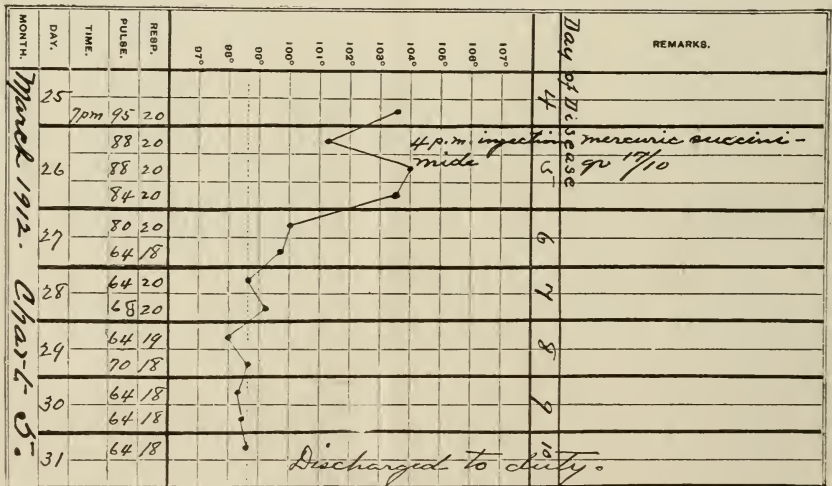 MONTH. DAY. TIME. PULSE. RESP. 97° 98° 99° 100° 101° 102° 103° 104° 105° 106° 107° Day of Disease REMARKS.
March 1912. Chart 5.
25 4
7pm 95 20
88 20 4 p.m. injection mercuric succini-
mide gr 17/10
26 88 20 5
84 20
27 80 20 6
64 18
28 64 20 7
68 20
29 64 19 8
70 18
30 64 18 9
64 18
31 64 18 10
Discharged to duty.